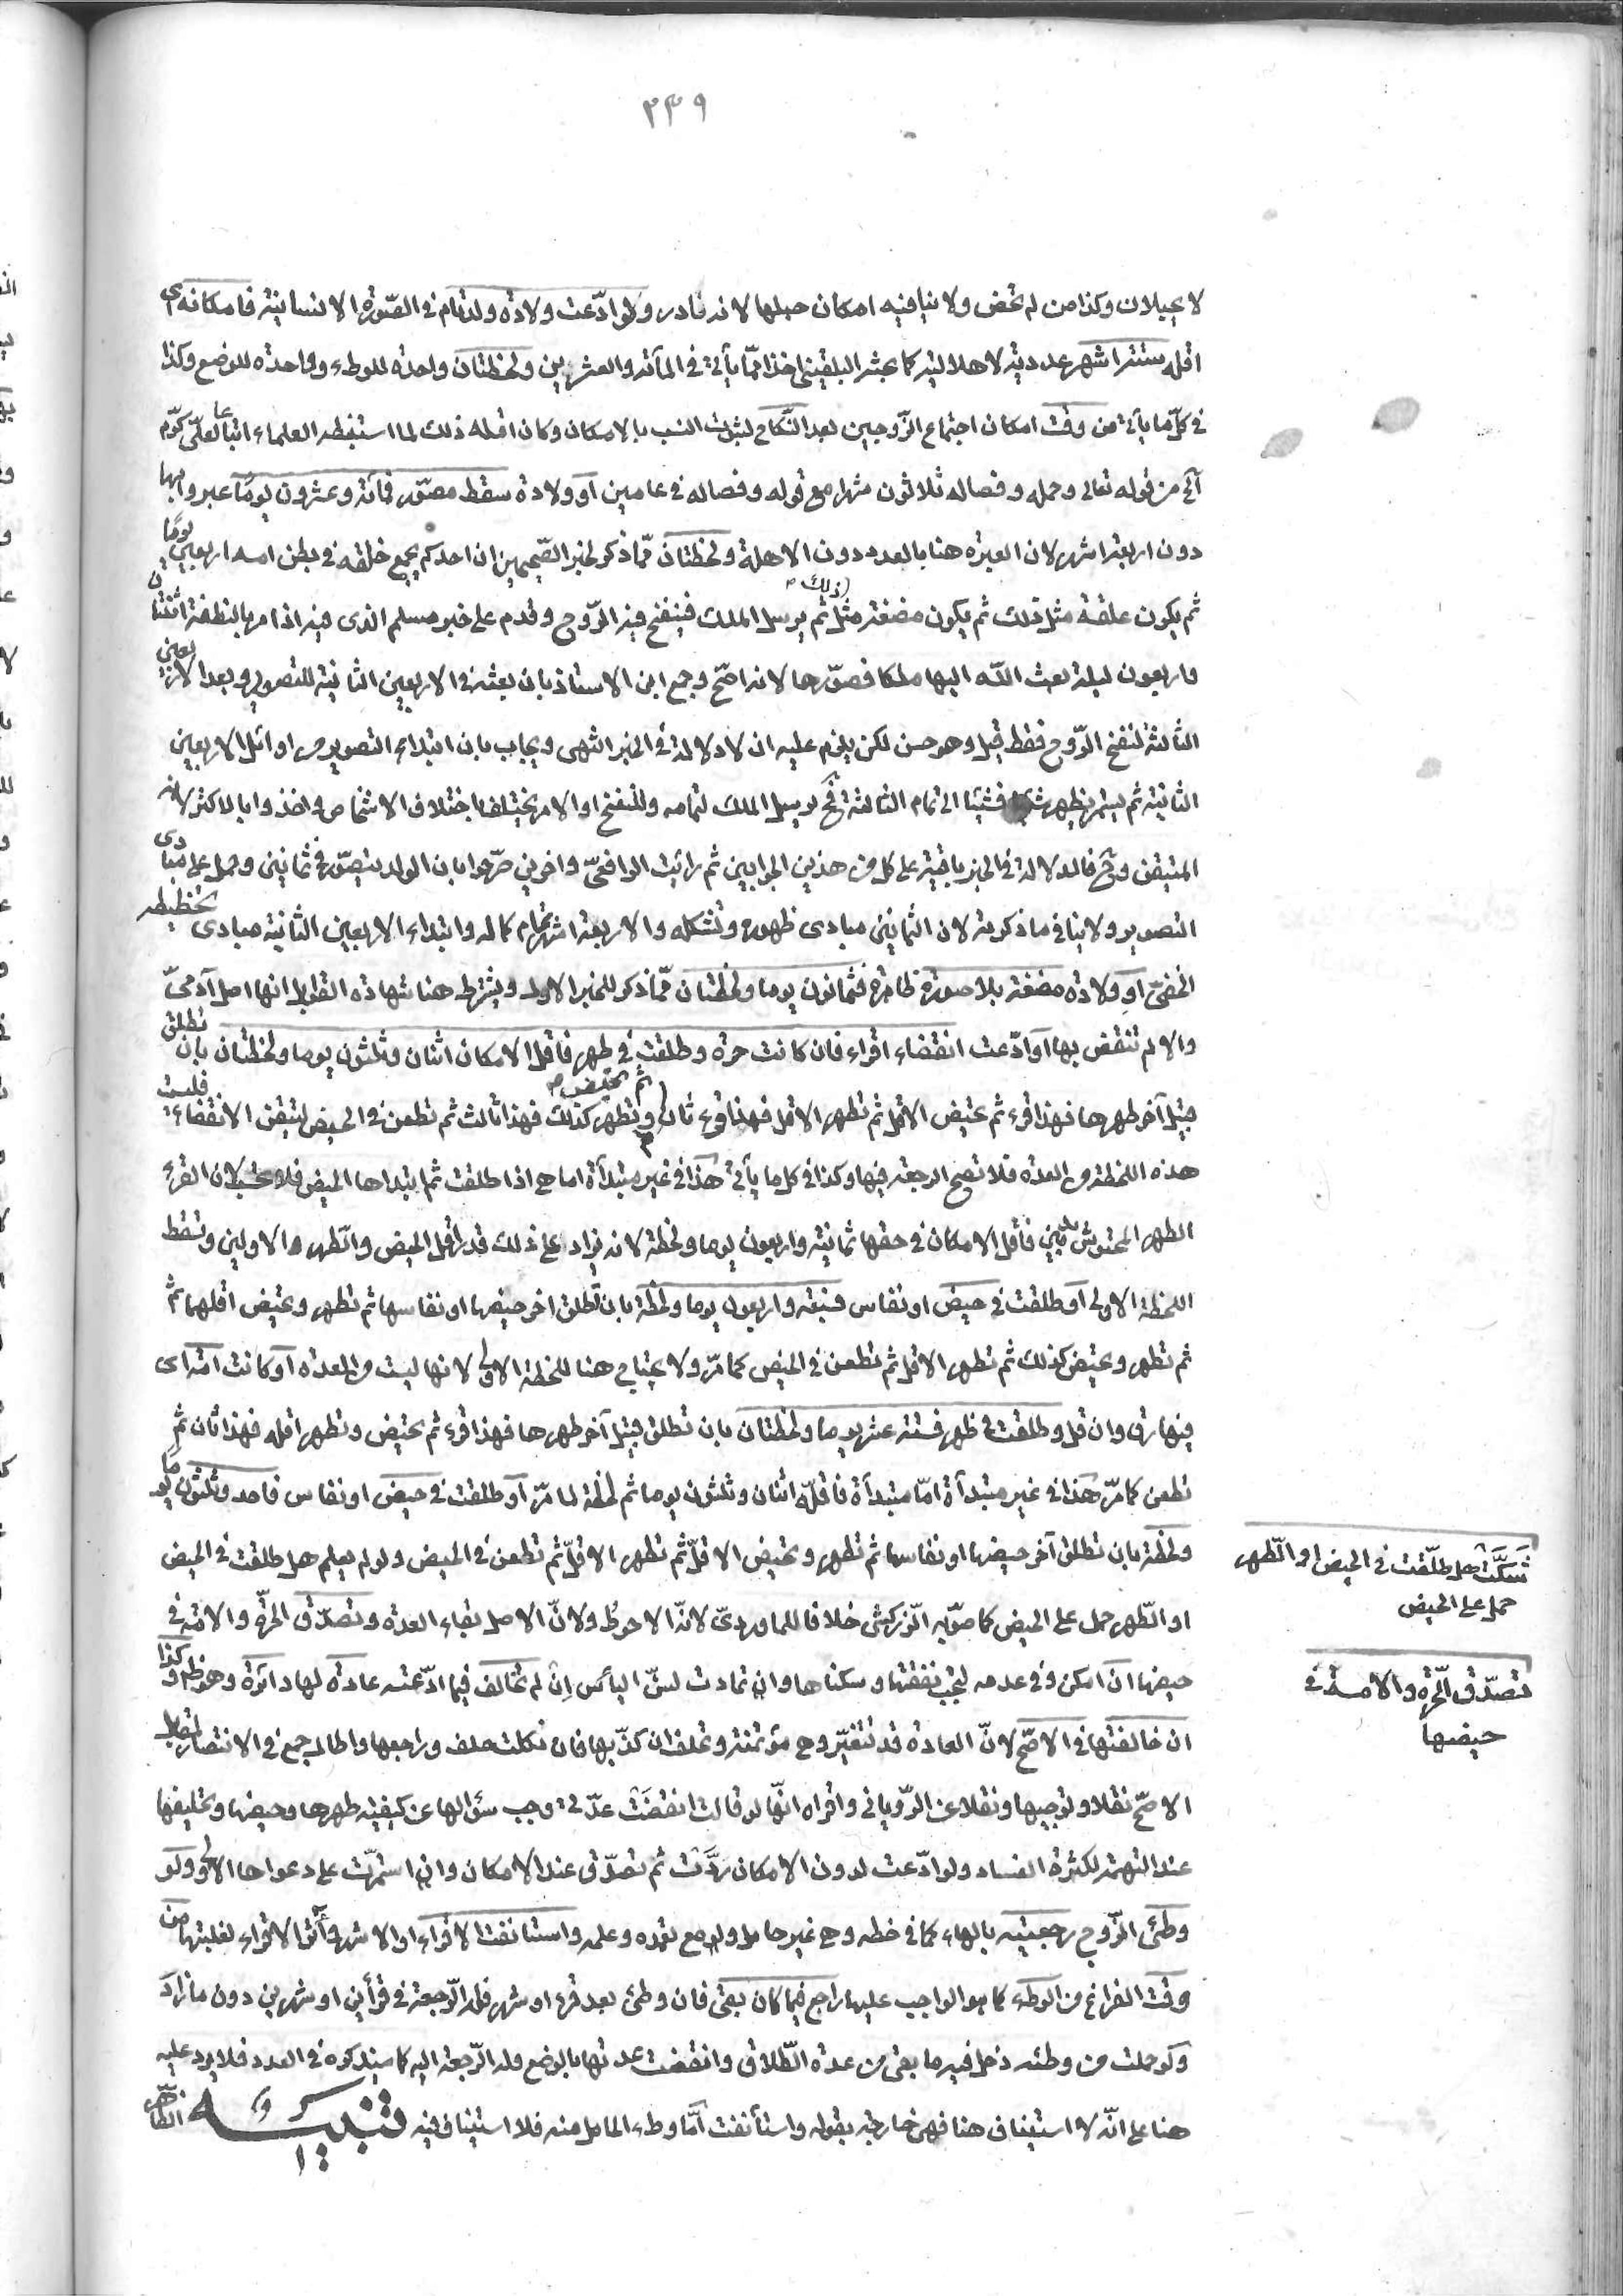 ٣٣٩
لا يحيلان وكذا من لم تحض ولا ينافيه امكان حبلها لانه نادر ولو ادّعت ولادة ولد تام في الصّورة الانسانية فامكانه اى
اقله ستة اشهر عددية لا هلالية كما بحثه البلقيني اخذا ممّا يأتي في المأته والعشرين ولحظتان واحدة للوطء وواحدة للوضع وكذا
في كلّ ما يأتي من وقت امكان اجتماع الزّوجين بعد النّكاح لثبوت النسب بالامكان وكان اقله ذلك لما استنبطه العلماء اتباعا لعليّ كرّم
آلخ من قوله تعالى وحمله وفصاله ثلاثون شهرا مع قوله وفصاله في عامين او ولادة سقط مصوّر فمأته وعشرون يومًا عبر وابها
دون اربعة اشهر لان العبرة هنا بالعدد دون الاهلة ولحظتان ممّا ذكر لخبر الصّحيحين ان احدكم يجمع خلقه في بطن امه اربعين يومًا
ثم يكون علقة مثل ذلك ثم يكون مضغة مثل ذلك ثم يرسل الملك فينفخ فيه الرّوح وقدم على خبر مسلم الذى فيه اذا مر بالنطفة اثنتان
واربعون ليلة بعث الله اليها ملكا فصوّرها لانه اصحّ وجمع ابن الاستاذ بان بعثه في الاربعين الثانية للتصوير وبعد الاربعين
الثالثة لنفخ الرّوح فقط قيل وهو حسن لكن يلزم عليه ان لا دلالة في الخبر انتهى ويجاب بان ابتداء التصوير من اوائل الاربعين
الثانية ثم يستمر يظهر شيئا فشيئا الى تمام الثالثة فح يرسل الملك لتمامه وللنفخ او الامر يختلف باختلاف الاشخاص واخذوا بالاكثر لانه
المتيقن وح فالدلالة في الخبر باقية على كل من هذين الجوابين ثم رأيت الرافعيّ واخرين صرّحوا بان الولد يتصوّر في ثمانين وحمل على مبادى
التصوير ولا ينافي ما ذكرته لان الثمانين مبادى ظهوره وتشكله والاربعة اشهر تمام كماله وابتداء الاربعين الثانية مبادى تخطيطه
الخفىّ او ولادة مضغة بلا صورة ظاهرة فثمانون يوما ولحظتان ممّا ذكر للخبر الاول ويشترط هنا شهادة القوابل انها اصل آدمىّ
والا لم تنقض بها او ادّعت انقضاء اقراء فان كانت حرة وطلقت في طهر فاقل الامكان اثنان وثلثون يوما ولحظتان بان تطلق
قبيل آخر طهرها فهذا قرء ثم تحيض الاقل ثم تطهر الاقل فهذا قرء ثان ثم تحيض وتطهر كذلك فهذا ثالث ثم تطعن في الحيض لتيقن الانقضاء فليست
هذه اللحظة من العدة فلا تصح الرجعة فيها وكذا في كل ما يأتي هذا في غير مبتدأة اما هي اذا طلقت ثم ابتداها الحيض فلا يحسب لان القرء
الطهر المحتوش بدمين فاقل الامكان في حقها ثمانية واربعون يوما ولحظة لانه يزاد على ذلك قدر اقل الحيض والطهر الاولين وتسقط
اللحظة الاولى او طلقت في حيض او نفاس فسبعة واربعون يوما ولحظة بان تطلق اخر حيضها او نفاسها ثم تطهر وتحيض اقلهما ثم
ثم تطهر وتحيض كذلك ثم تطهر الاقل ثم تطعن في الحيض كما مرّ ولا يحتاج هنا للحظة الاولى لانها ليست من العدة او كانت امة اى
فيها رق وان قل وطلقت في طهر فستة عشر يوما ولحظتان بان تطلق قبيل آخر طهرها فهذا قرء ثم تحيض وتطهر اقله فهذا ثان ثم
تطعن كما مرّ هذا في غير مبتدأة امّا مبتدأة فاقلّه اثنان وثلثون يوما ثم لحظة لما مرّ او طلقت في حيض او نفاس فاحد وثلثون يوما
ولحظة بان تطلق آخر حيضها او نفاسها ثم تطهر وتحيض الاقلّ ثم تطهر الاقلّ ثم تطعن في الحيض ولو لم يعلم هل طلقت في الحيض
او الطّهر حمل على الحيض كما صوّبه الزّركشى خلافا للماوردىّ لانّه الاحوط ولانّ الاصل بقاء العدة وتصدّق الحرّة والامة في
حيضها ان امكن وفي عدمه لتجب نفقتها وسكناها وان تمادت لسنّ اليأس ان لم تخالف فيما ادّعته عادة لها دائرة وهو ظ وكذا
ان خالفتها في الاصّح لانّ العادة قد تتغيّر وهي مؤتمنة وتحلف ان كذّبها فان نكلت حلف وراجعها واطال جمع في الانتصار لمقابل
الاصحّ نقلا وتوجيها ونقلا عن الرّويانى واقراه انّها لو قالت انقضت عدّتى وجب سؤالها عن كيفية طهرها وحيضها وتحليفها
عند التهمة لكثرة الفساد ولو ادّعت لدون الامكان ردّت ثم تصدّق عند الامكان وان استمرّت على دعواها الاولى ولو
وطئ الزّوج رجعيته بالهاء كما في خطه وهي غير حامل ولو مع تعمده وعلمه واستانفت الاقراء او الاشهر وأثر الاقراء لغلبتها من
وقت الفراغ من الوطء كما هو الواجب عليها راجع فيما كان بقى فان وطئ بعد قرء او شهر فله الرّجعة في قرأين او شهرين دون ما زاد
ولو حملت من وطئه دخل فيه ما بقى من عدة الطّلاق وانقضت عدتها بالوضع وله الرّجعة اليه كما سيذكره في العدد فلا يرد عليه
هنا على انّه لا استيناف هنا فهي خارجة بقوله واستأنفت امّا وطء الحامل منه فلا استيناف فيه تنبيه الظّاهر
شكّت هل طلّقت في الحيض او الطّهر
حمل على الحيض
تصدّق الحّرة والامة في
حيضها